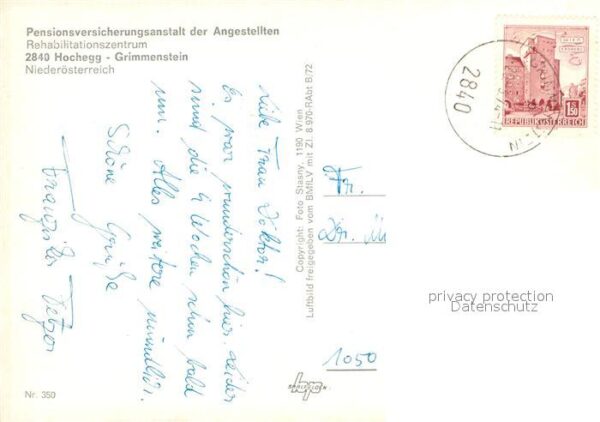 Pensionsversicherungsanstalt der Angestellten
Rehabilitationszentrum
2840 Hochegg - Grimmenstein
Niederösterreich
Liebe Frau Doktor!
Es war wunderschön hier. Leider
sind die 4 Wochen schon bald
um. Alles weitere mündlich.
Schöne Grüße
Franziska Fetzer
Copyright: Foto Stasny, 1190 Wien
Luftbild freigegeben vom BMfLV mit Zl: 8970-RAbt B/72
2840
1.50
REPUBLIK ÖSTERREICH
Fr.
Dr.
1050
privacy protection
Datenschutz
Nr. 350